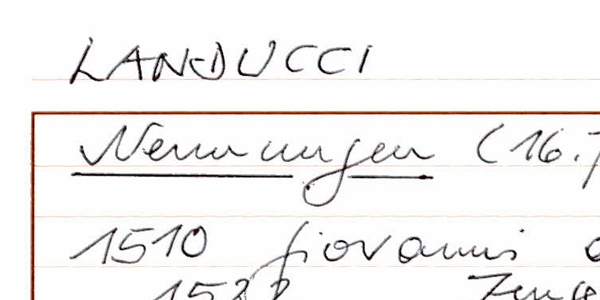 LANDUCCI
Nennungen (16.
1510 Giovanni
Zeuge